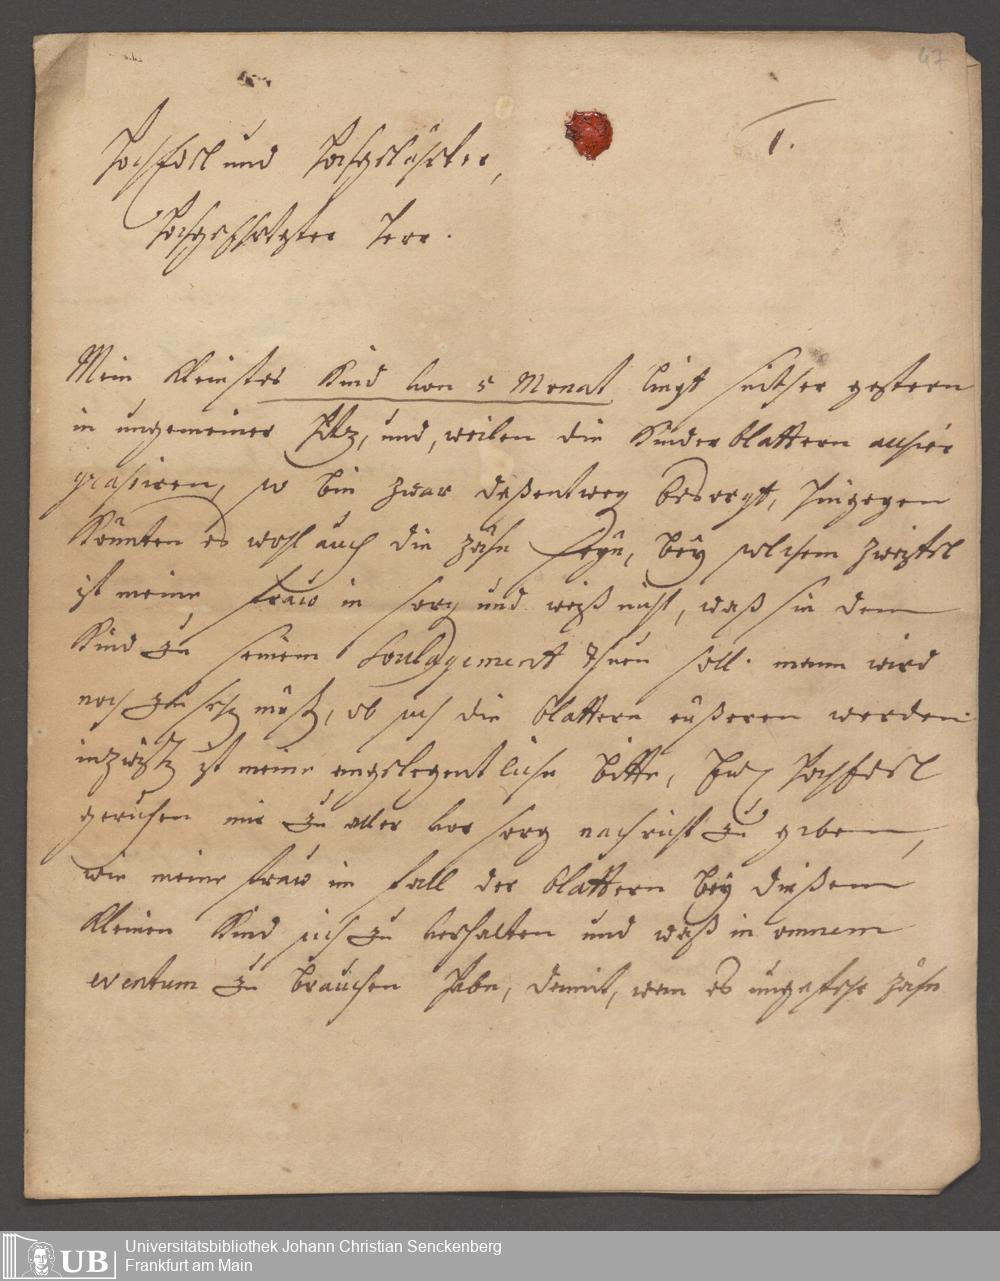 47
1.
HochEdel und Hochgelährter,
Hochgeschätzter Herr.
Mein kleinstes Kind von 5 Monat liegt seither gestern
in ungemeiner Hitz, und, weilen die Kinderblattern allhier
grasiren, so bin zwar deßentweg besorgt, hingegen
könnten es wohl auch die zähn seyn, bey solchem zweifel
ist meine fraw in sorg und weiß nicht, waß sie dem
Kind zu seinem Soulagement thuen soll. mann wird
noch zu seh müß, ob sich die blattern eüßeren werden.
inzwisch ist meine angelegentliche bitte, Ew HochEdel
geruhen mir zu aller vorsorg nachricht zu geben,
wie meine fraw im fall der blattern bey dießem
kleinen Kind sich zu verhalten und waß in omnem
eventum zu brauchen habe, damit, wenn es ungefehr zähn
UB
Universitätsbibliothek Johann Christian Senckenberg
Frankfurt am Main